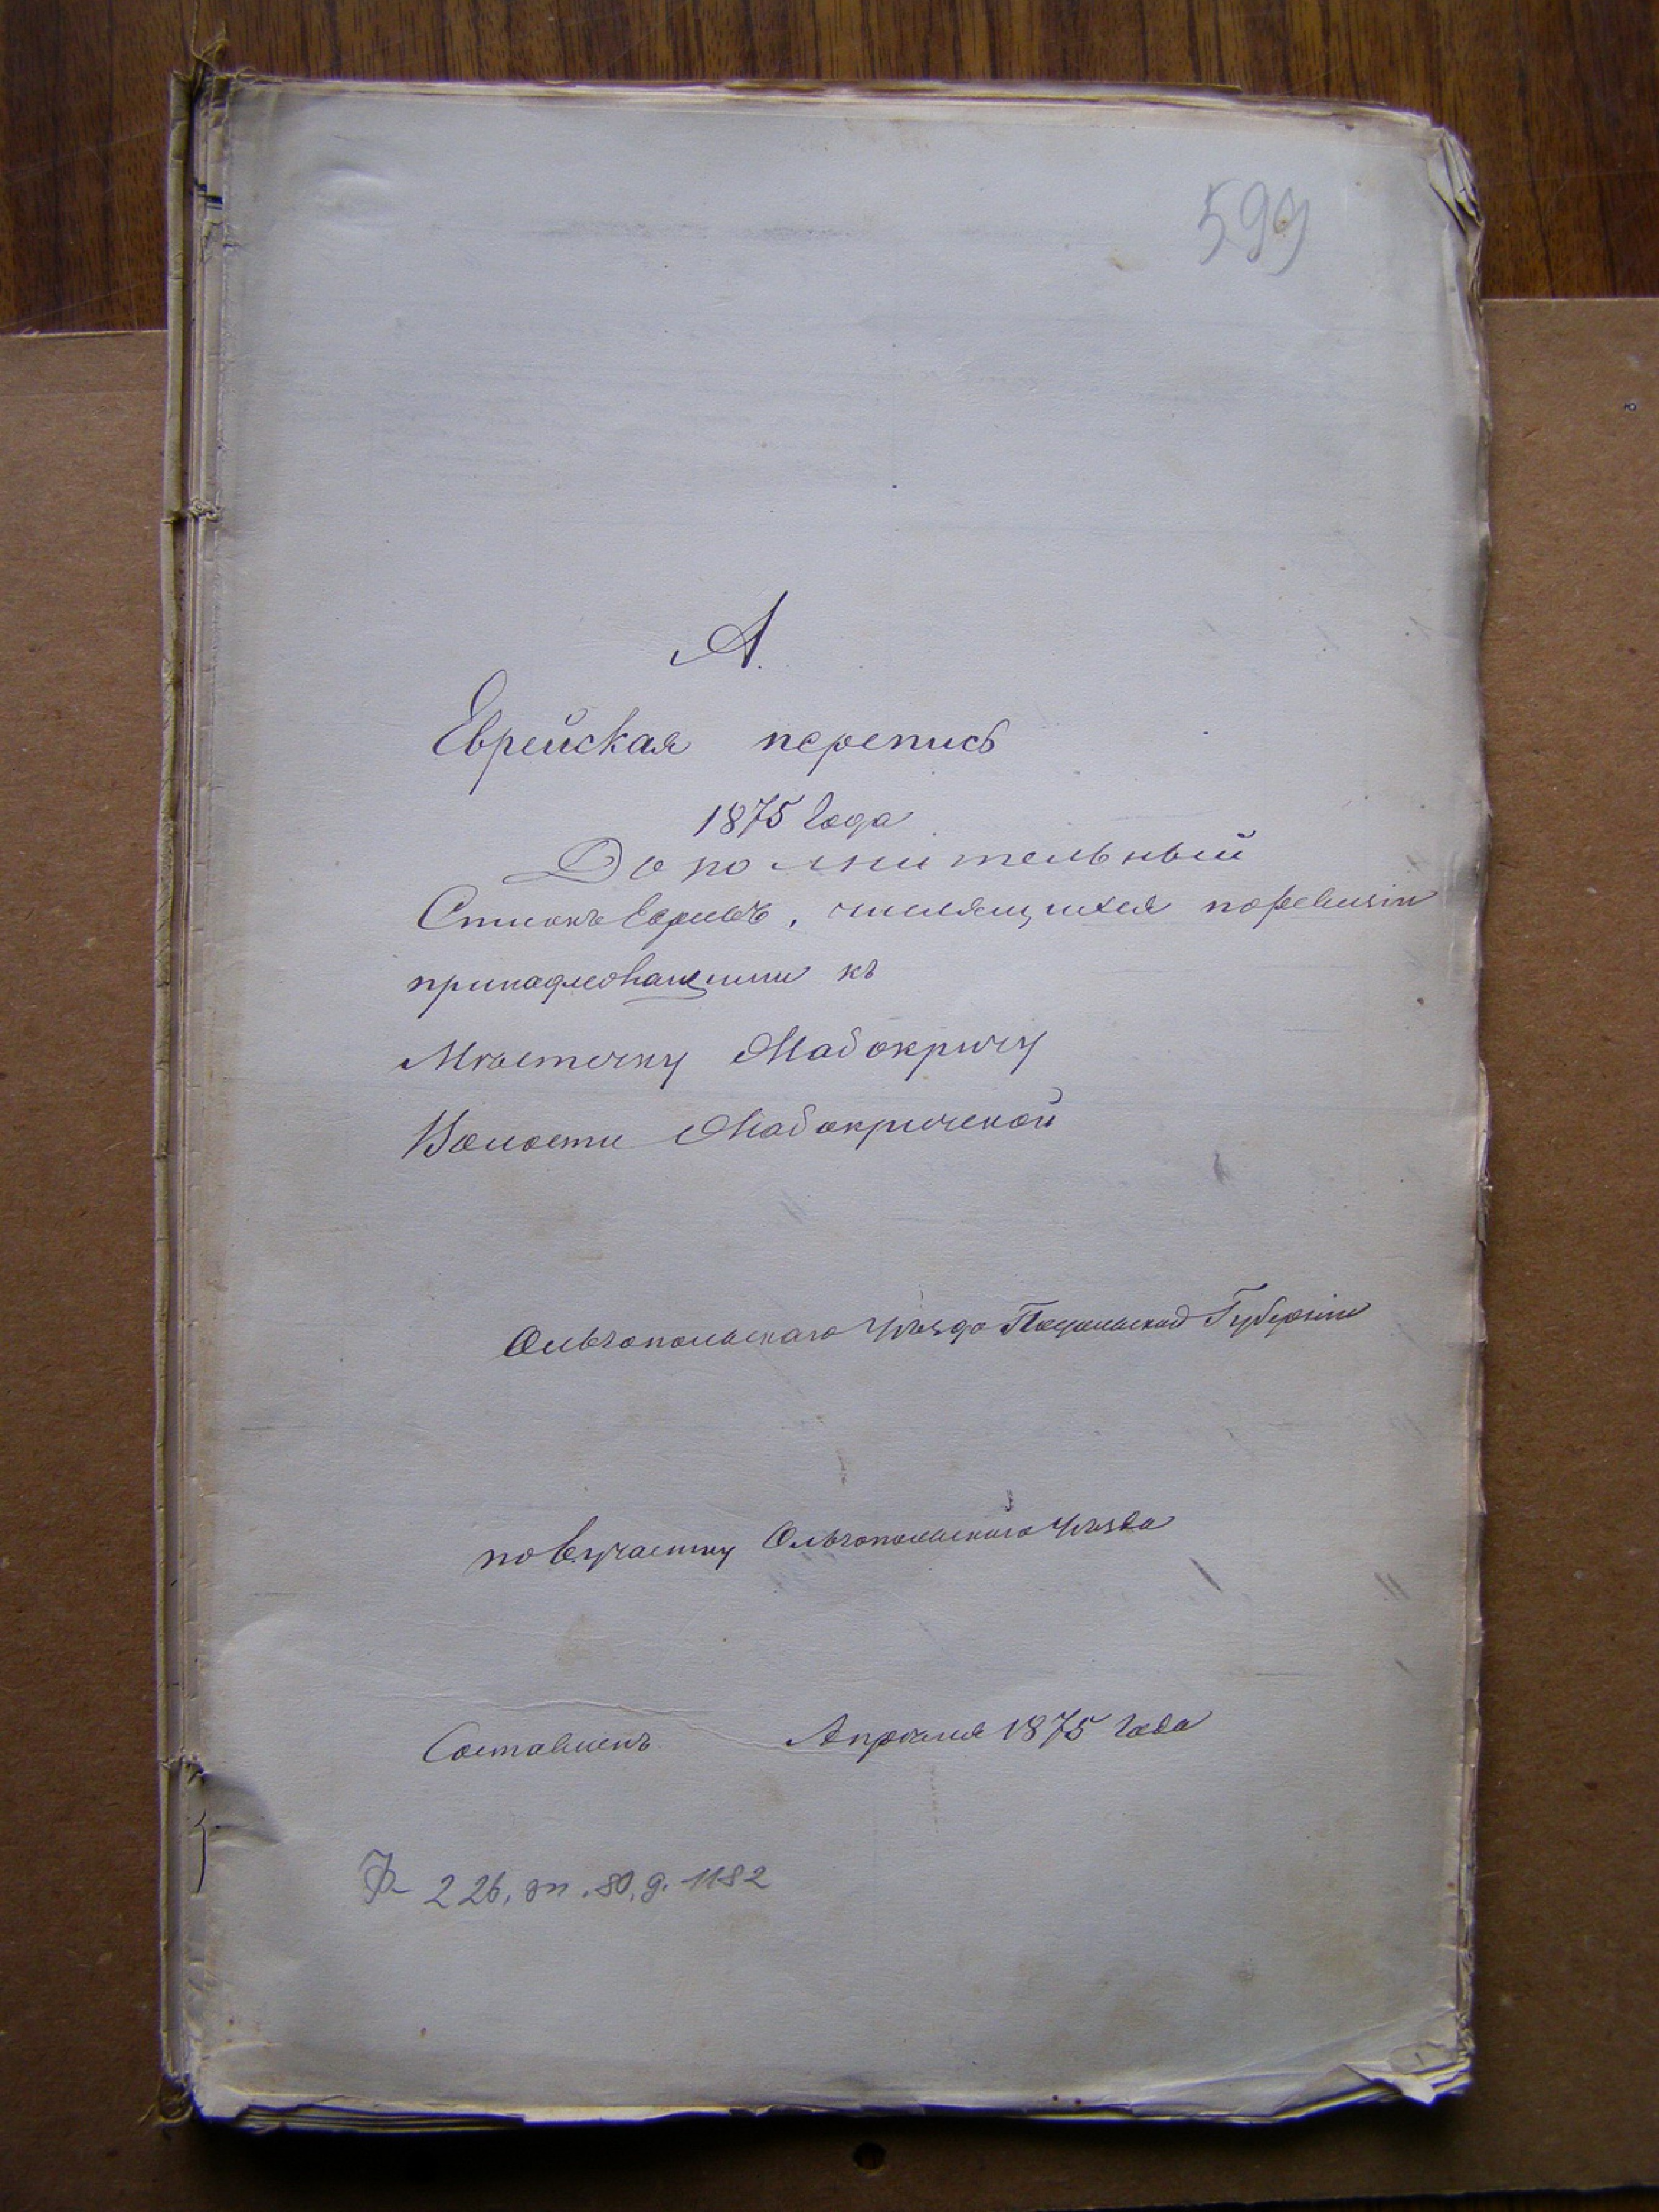 599
А.
Еврейская перепись
1875 Года
Дополнительный
Списокъ Евреевъ, числящихся поревизіи
принадлежащими къ
Мѣстечку Мабокричу
Волости Мабокричской
Ольгопольскаго Уѣзда Подольской Губерніи
по участку Ольгопольскаго Уѣзда
Составленъ Апрѣля 1875 Года
Ф 226, оп. 80, д. 1182